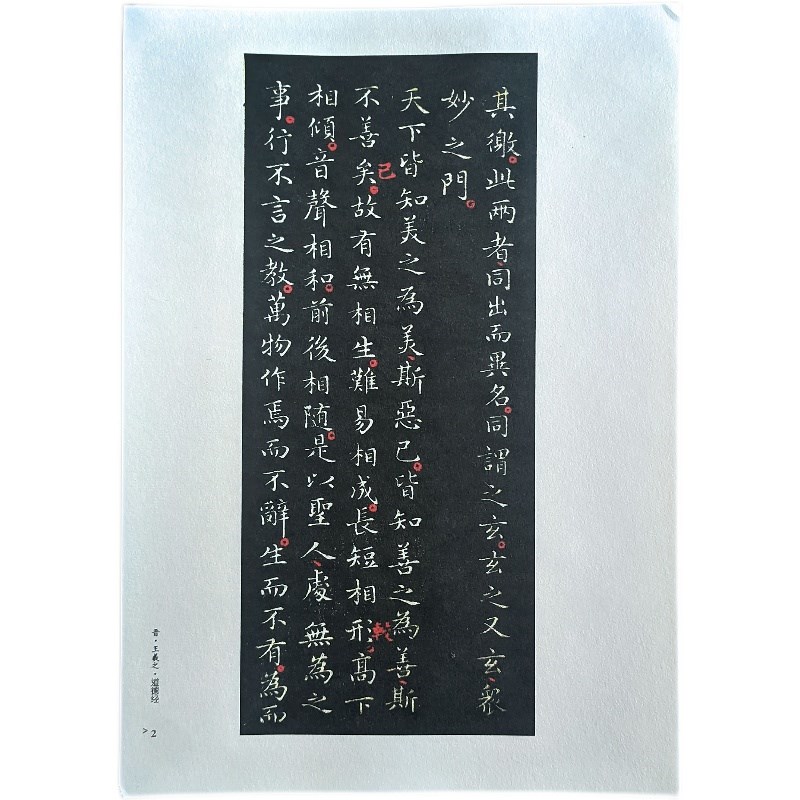 其徼。此兩者、同出而異名。同謂之玄。玄之又玄、衆
妙之門。
天下皆知美之為美、斯惡已。皆知善之為善、斯
已
不善矣。故有無相生。難易相成。長短相形、高下
相傾。音聲相和。前後相隨。是以聖人、處無為之
事。行不言之教。萬物作焉而不辭。生而不有。為而
晋·王羲之·道德经
> 2